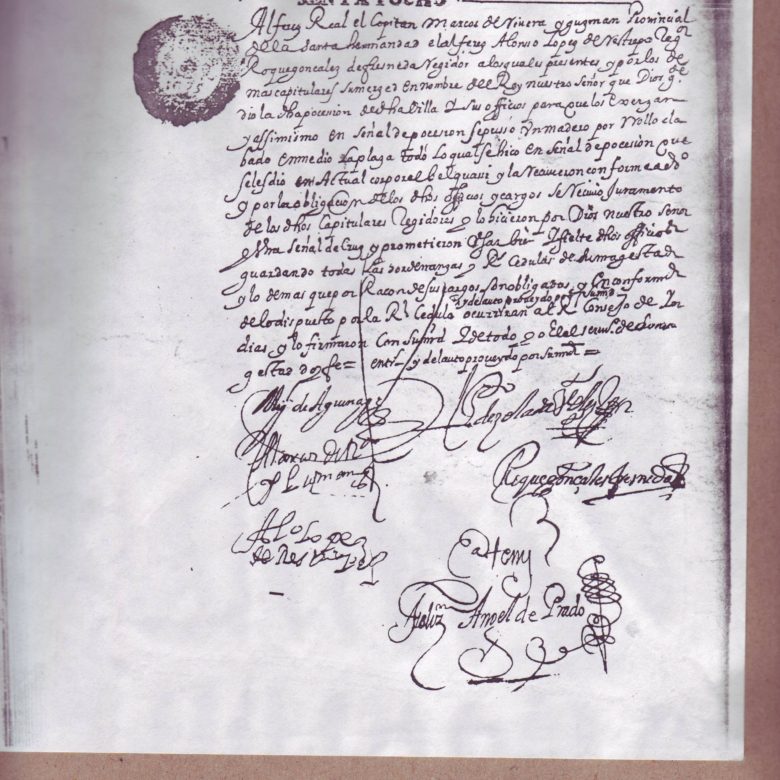 SENTA Y OCHO
Alferez Real el Capitan Marcos de Rivera y guzman Provincial
de la Santa hermandad el alferez Alonso Lopez de Restrepo Regor
Roque gonzalez de fresneda Regidor a los quales presentes y por los de
mas capitulares su merzed en nombre del Rey nuestro Señor que Dios gde
dio la dha pocesion de dha Villa y sus officios para que los exerzan
y assimismo en Señal de pocesion se puso Un madero por Rollo cla
bado en medio la plaza todo lo qual se hiço en Señal de pocesion que
se les dio en Actual corporel bel quasi y la Recivieron conforme a dro
y por la obligacion de los dhos officios y cargos se Recivio Juramento
de los dhos Capitulares Regidores y lo hicieron por Dios nuestro Señor
y Una Señal de Cruz y prometieron Usar bien y fielmte dhos officios
guardando todas las hordenanzas y Rs Cedulas de su magestad
y lo demas que por Racon de sus cargos son obligados y en conformd
y del auto proveydo por su md
de lo dispuesto por la Rl Cedula ocurriran al Rl Consejo de Yn
dias y lo firmaron con su md de todo y
gestad doy fe = y del auto proveydo por su md =
Migl de Aguinaga
Marcos de Riva
y guzman
Roque Gonzales fresneda
Alo Lopez
de Restrepo
Ante my
Angel de Prado